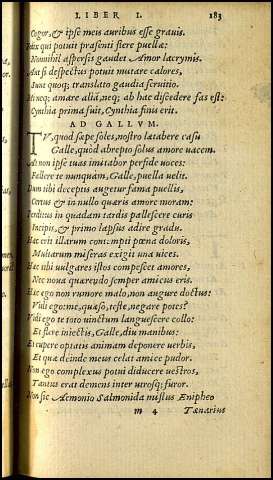 LIBER I. 183
Cogor, & ipse meis auribus esse grauis.
Felix qui potuit præsenti flere puellæ:
Nonnihil aspersis gaudet Amor lacrymis.
Aut si despectus potuit mutare calores,
Sunt quoq; translato gaudia seruitio.
Mi neq; amare aliã, neq; ab hac discedere fas est:
Cynthia prima fuit, Cynthia finis erit.
AD GALLVM.
TV, quod sæpe soles, nostro lætabere casu
Galle, quòd abrepto solus amore vacem.
At non ipse tuas imitabor perfide voces:
Fallere te nunquam, Galle, puella velit.
Dum tibi deceptis augetur fama puellis,
Certus & in nullo quæris amore moram:
Perditus in quadam tardis pallescere curis
Incipis, & primo lapsus adire gradu.
Hæc erit illarum contempti pœna doloris,
Multarum miseras exigit una uices.
Hæc tibi uulgares istos compescet amores,
Nec noua quærendo semper amicus eris.
Hæc ego non rumore malo, non augure doctus:
Vidi ego: me, quæso, teste, negare potes?
Vidi ego te toto uinctum languescere collo:
Et flere iniectis, Galle, diu manibus:
Et cupere optatis animam deponere uerbis,
Et quæ deinde meus celat amice pudor.
Non ego complexus potui diducere uestros,
Tantus erat demens inter utrosq; furor.
Non sic Aemonio Salmonida mistus Enipheo
m 4 Tænarius